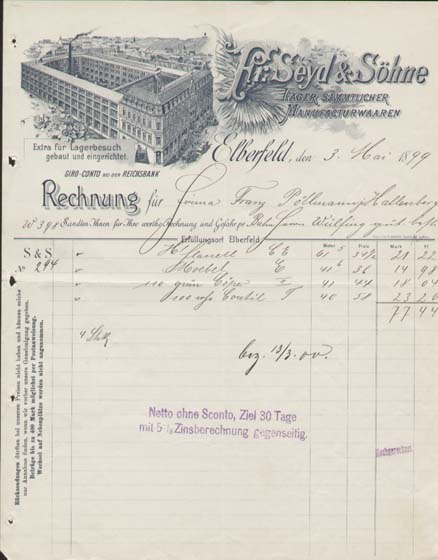 Fr. Seyd & Söhne
LAGER SÄMMTLICHER
MANUFACTURWAAREN
Extra für Lagerbesuch
gebaut und eingerichtet.
GIRO-CONTO BEI DER REICHSBANK
Elberfeld, den 3. Mai 1899
Rechnung für Firma Franz Pöllmann, Hallenberg
No 398 Sandten Ihnen für Ihre werthe Rechnung und Gefahr per Bahn
Erfüllungsort Elberfeld.
Meter Preis Mark
S & S
No 294
61 21 22
Moebel E 41 36 14 98
110 grün Köper 41 44 18 04
40 58 23 20
77 44
4 Stck
bez. 13/3. 00.
Netto ohne Sconto, Ziel 30 Tage
mit 5 % Zinsberechnung gegenseitig.
Nachgerechnet
Rücksendungen dürfen bei unseren Preisen nicht haben und können solche
nur Annahme finden, wenn wir vorher unsere Genehmigung gegeben.
Beträge bis zu 400 Mark möglichst per Postanweisung.
Wechsel auf Nebenplätze werden nicht angenommen.